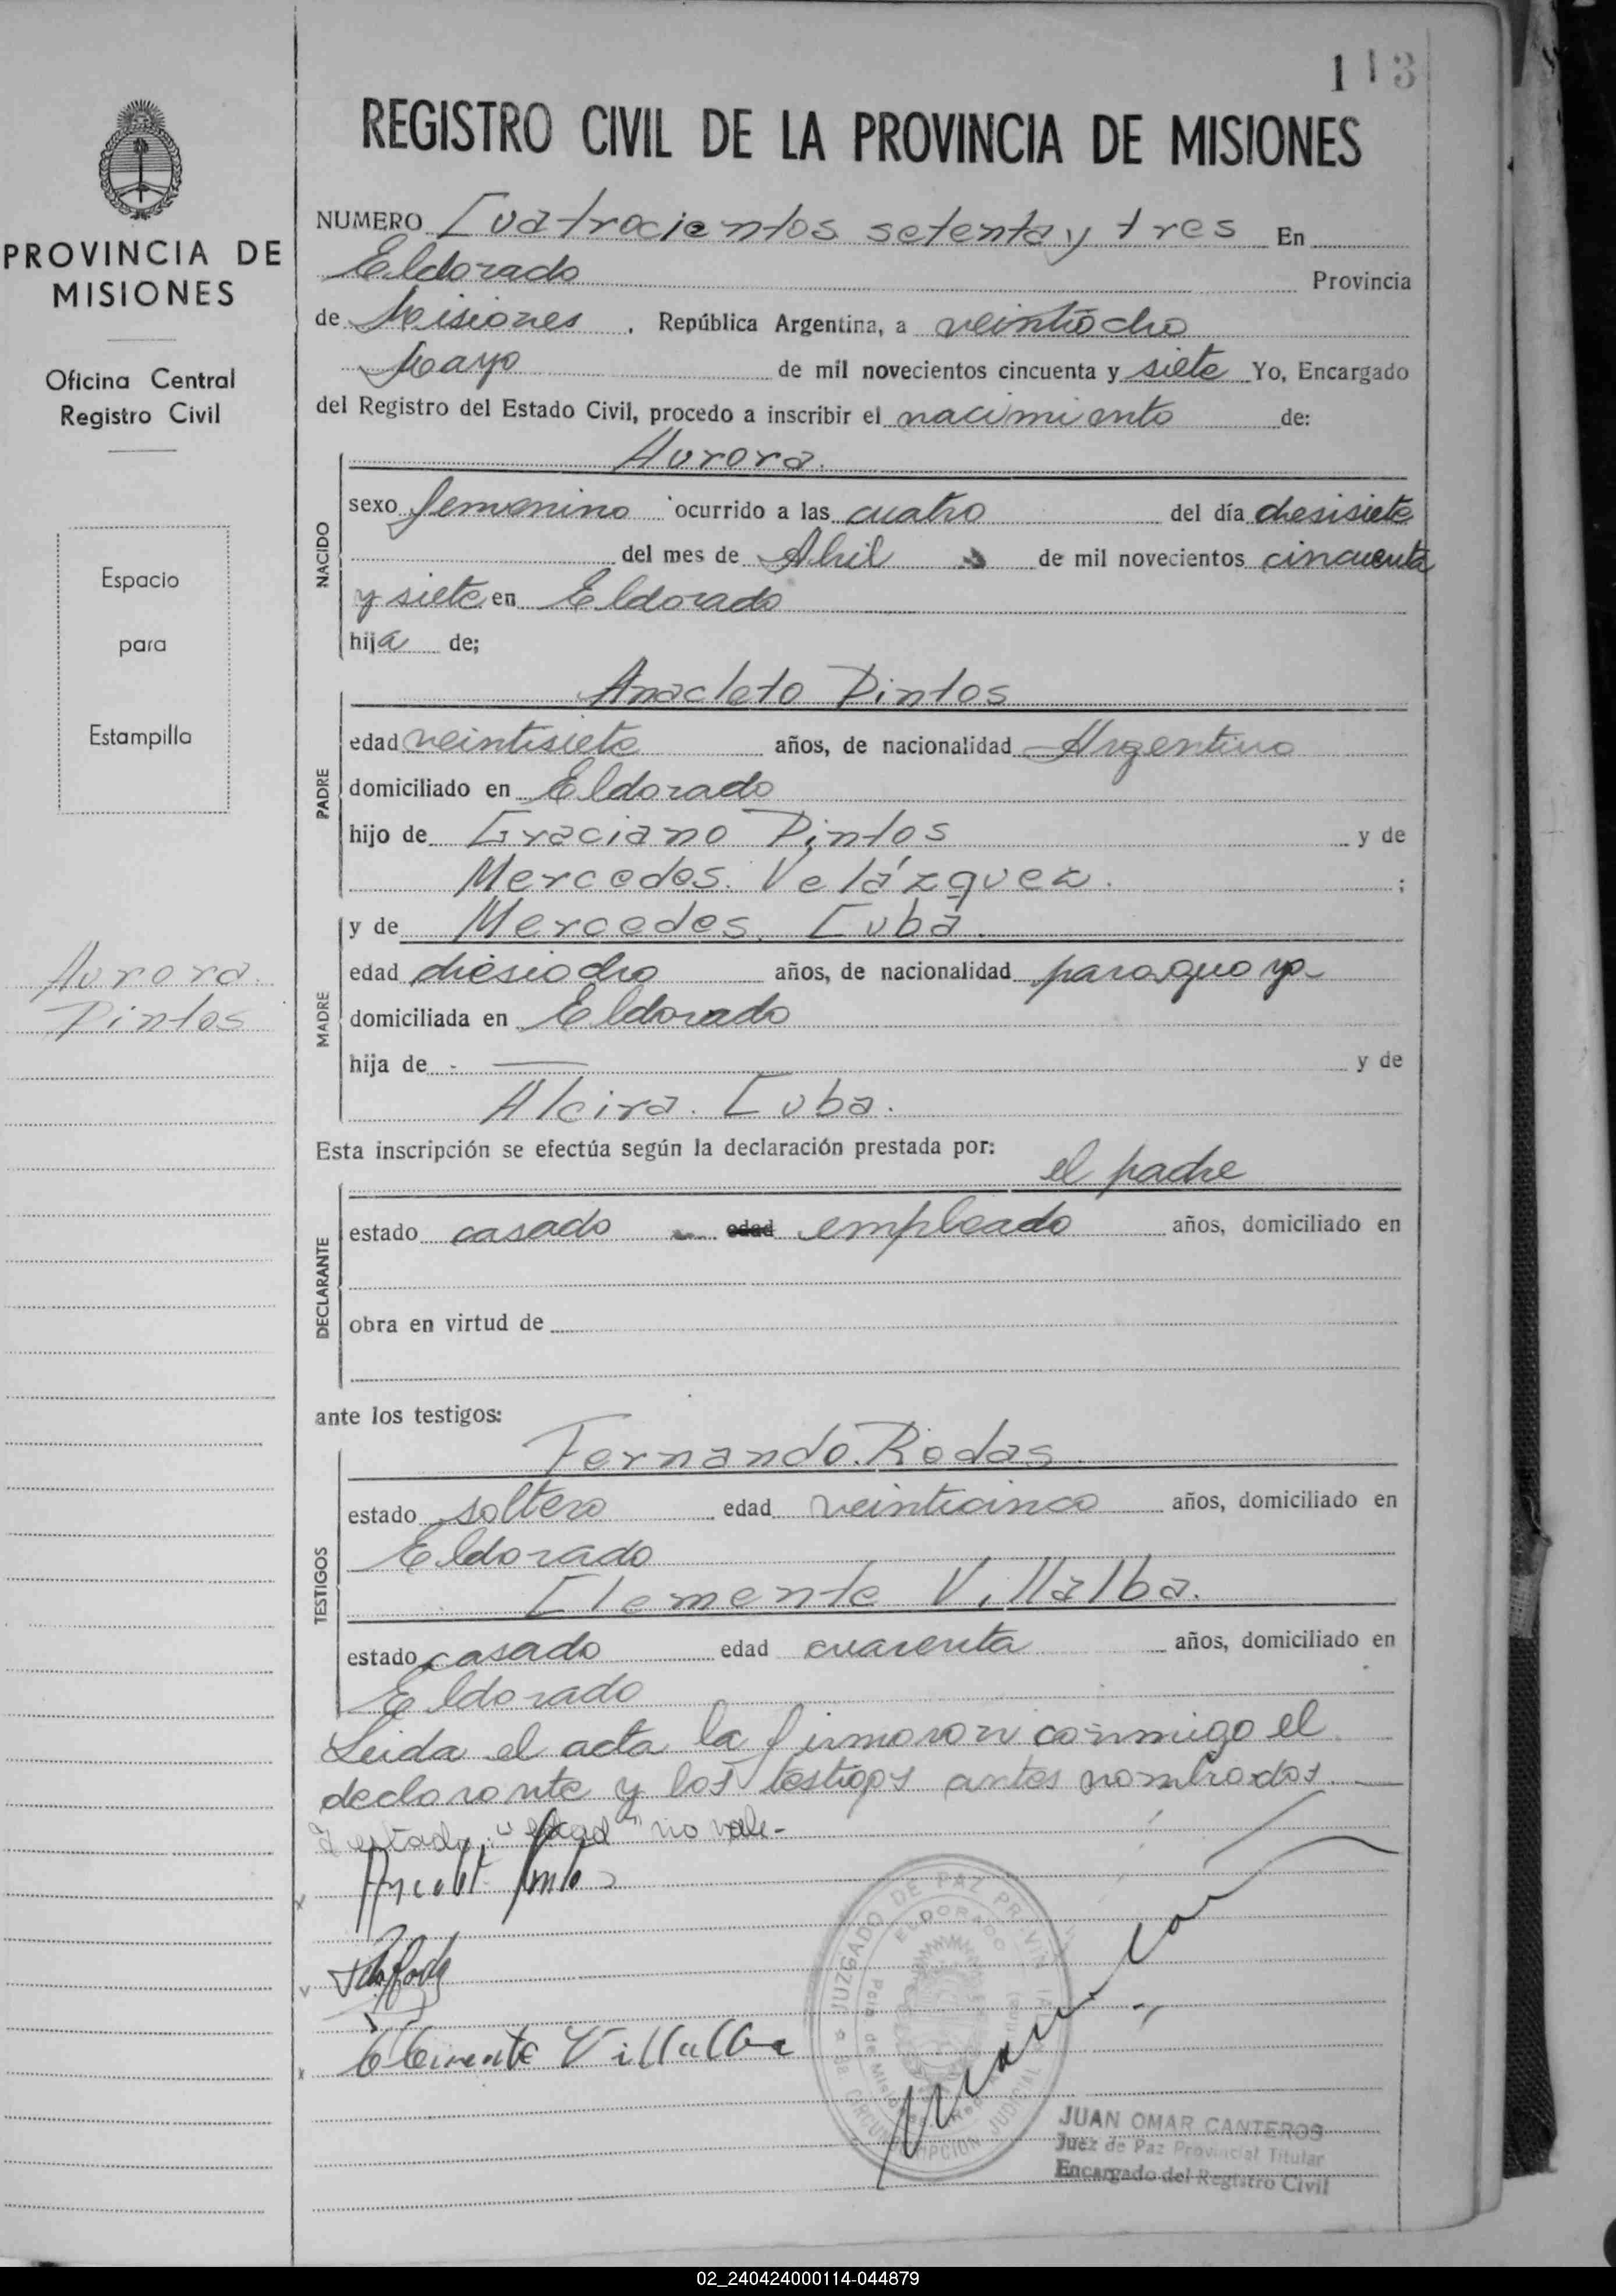 113
REGISTRO CIVIL DE LA PROVINCIA DE MISIONES
PROVINCIA DE
MISIONES
Oficina Central
Registro Civil
Espacio
para
Estampilla
Aurora.
Pintos
NUMERO Cuatrocientos setenta y tres En
Eldorado Provincia
de Misiones, República Argentina, a veintiocho
Mayo de mil novecientos cincuenta y siete Yo, Encargado
del Registro del Estado Civil, procedo a inscribir el nacimiento de:
Aurora.
NACIDO
sexo femenino ocurrido a las cuatro del día diesisiete
del mes de Abril de mil novecientos cincuenta
y siete en Eldorado
hija de;
Anacleto Pintos
PADRE
edad veintisiete años, de nacionalidad Argentino
domiciliado en Eldorado
hijo de Graciano Pintos y de
Mercedes. Velázquez. ;
y de Mercedes. Cuba.
MADRE
edad diesiocho años, de nacionalidad paraguaya
domiciliada en Eldorado
hija de - — y de
Alcira. Cuba.
Esta inscripción se efectúa según la declaración prestada por:
el padre
DECLARANTE
estado casado edad empleado años, domiciliado en
obra en virtud de
ante los testigos:
Fernando. Rodas.
TESTIGOS
estado soltero edad veinticinco años, domiciliado en
Eldorado
Clemente Villalba.
estado casado edad cuarenta años, domiciliado en
Eldorado
Leida el acta la firmaron conmigo el
declarante y los testigos antes nombrados.
"edad" no vale-
Clemente Villalba
JUZGADO DE PAZ PROVINCIAL
ELDORADO
Pcia. de Misiones
CIRCUNSCRIPCION JUDICIAL
JUAN OMAR CANTEROS
Juez de Paz Provincial Titular
Encargado del Registro Civil
02_240424000114-044879